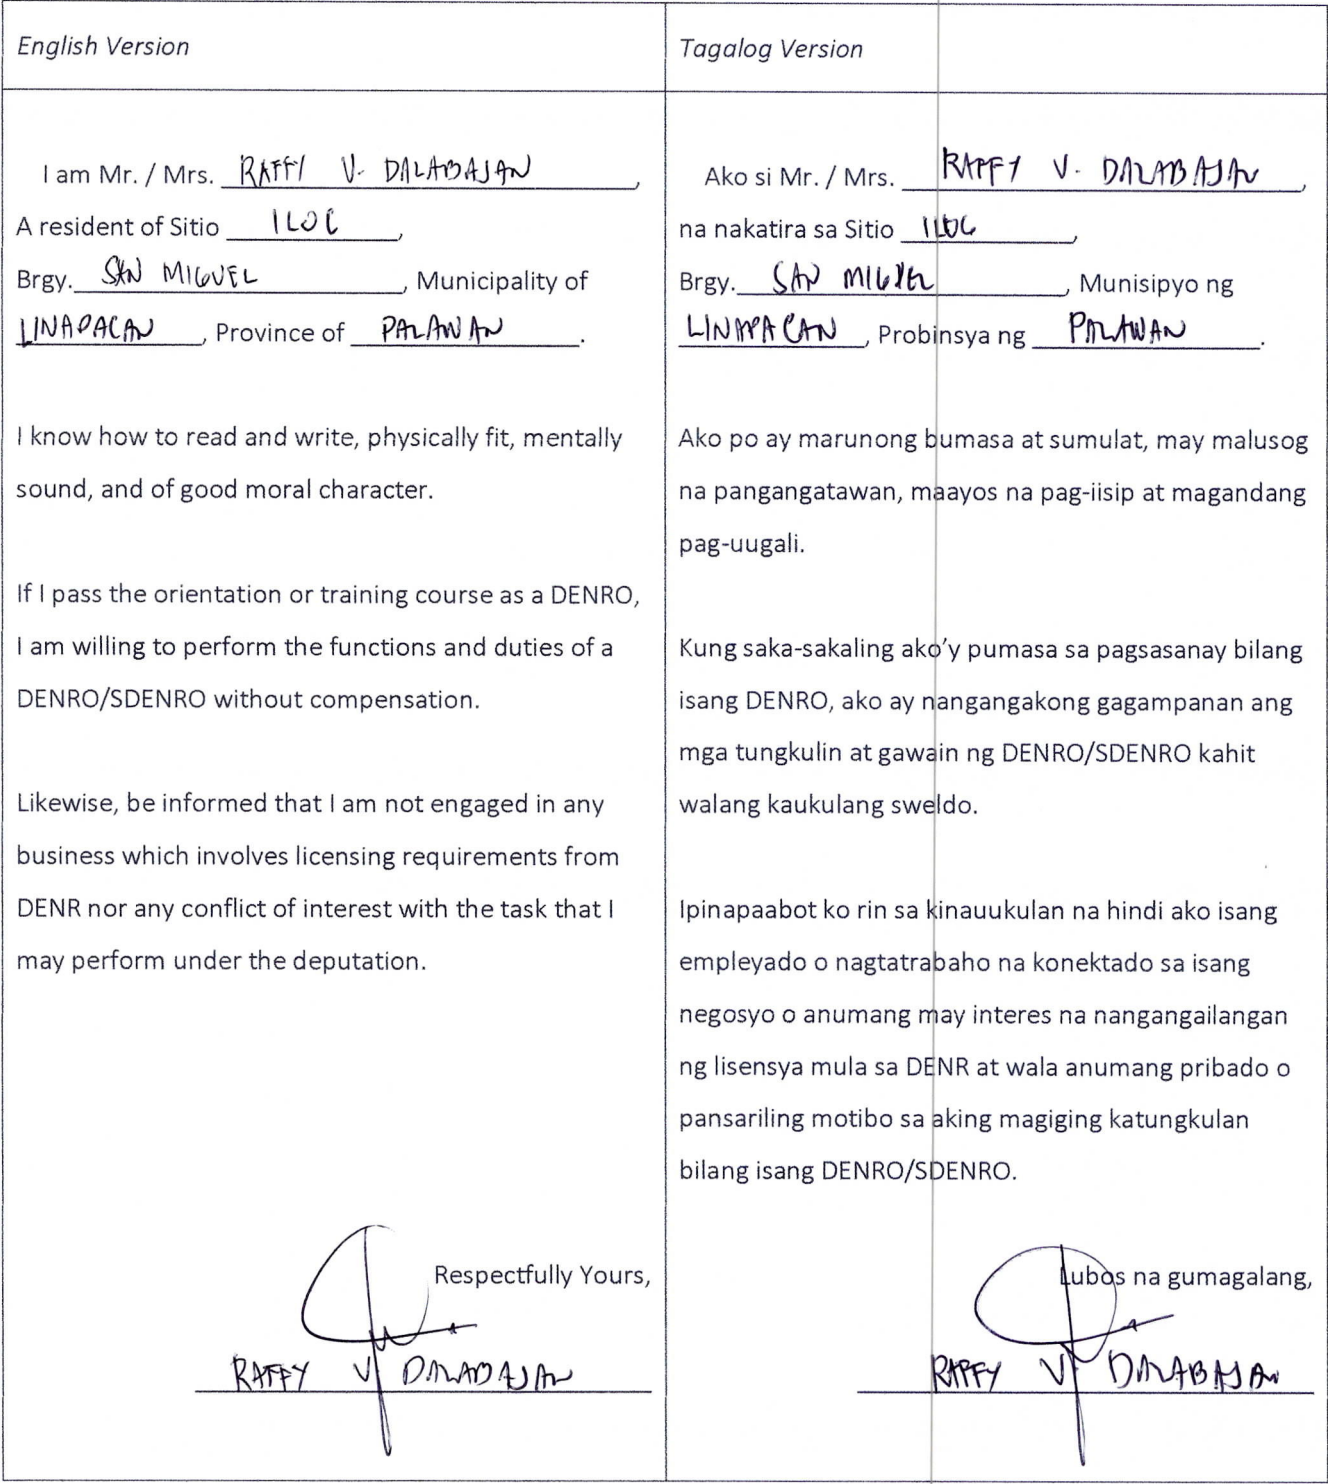 English Version
I am Mr. / Mrs. RAFFY V. DALABAJAN,
A resident of Sitio ILOC,
Brgy. SAN MIGUEL, Municipality of
LINAPACAN, Province of PALAWAN.
I know how to read and write, physically fit, mentally
sound, and of good moral character.
If I pass the orientation or training course as a DENRO,
I am willing to perform the functions and duties of a
DENRO/SDENRO without compensation.
Likewise, be informed that I am not engaged in any
business which involves licensing requirements from
DENR nor any conflict of interest with the task that I
may perform under the deputation.
Respectfully Yours,
RAFFY V DALABAJAN
Tagalog Version
Ako si Mr. / Mrs. RAFFY V. DALABAJAN,
na nakatira sa Sitio ILOC,
Brgy. SAN MIGUEL, Munisipyo ng
LINAPACAN, Probinsya ng PALAWAN.
Ako po ay marunong bumasa at sumulat, may malusog
na pangangatawan, maayos na pag-iisip at magandang
pag-uugali.
Kung saka-sakaling ako'y pumasa sa pagsasanay bilang
isang DENRO, ako ay nangangakong gagampanan ang
mga tungkulin at gawain ng DENRO/SDENRO kahit
walang kaukulang sweldo.
Ipinapaabot ko rin sa kinauukulan na hindi ako isang
empleyado o nagtatrabaho na konektado sa isang
negosyo o anumang may interes na nangangailangan
ng lisensya mula sa DENR at wala anumang pribado o
pansariling motibo sa aking magiging katungkulan
bilang isang DENRO/SDENRO.
Lubos na gumagalang,
RAFFY V DALABAJAN